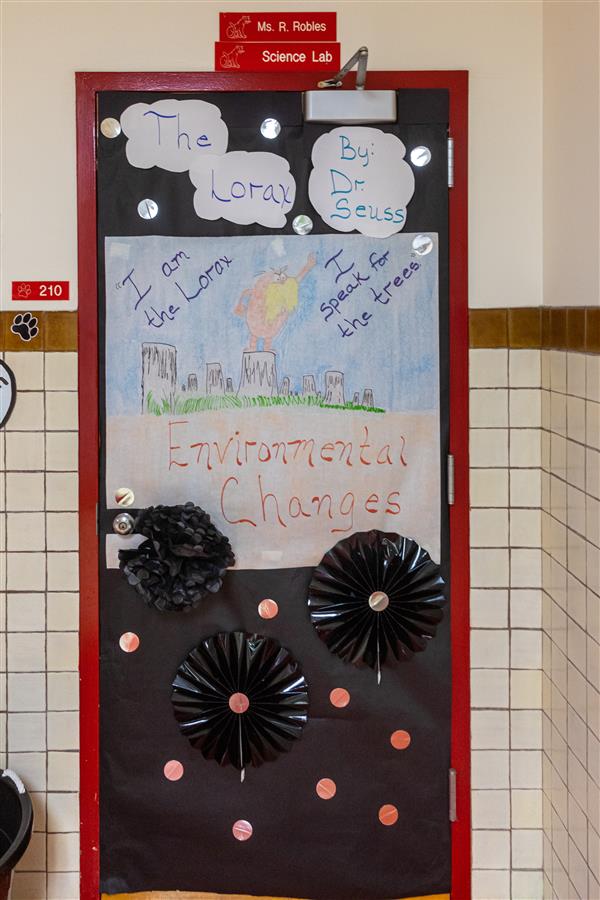 Ms. R. Robles
Science Lab
The
Lorax
By:
Dr.
Seuss
"I am
the Lorax
I
speak for
the trees"
210
Environmental
Changes